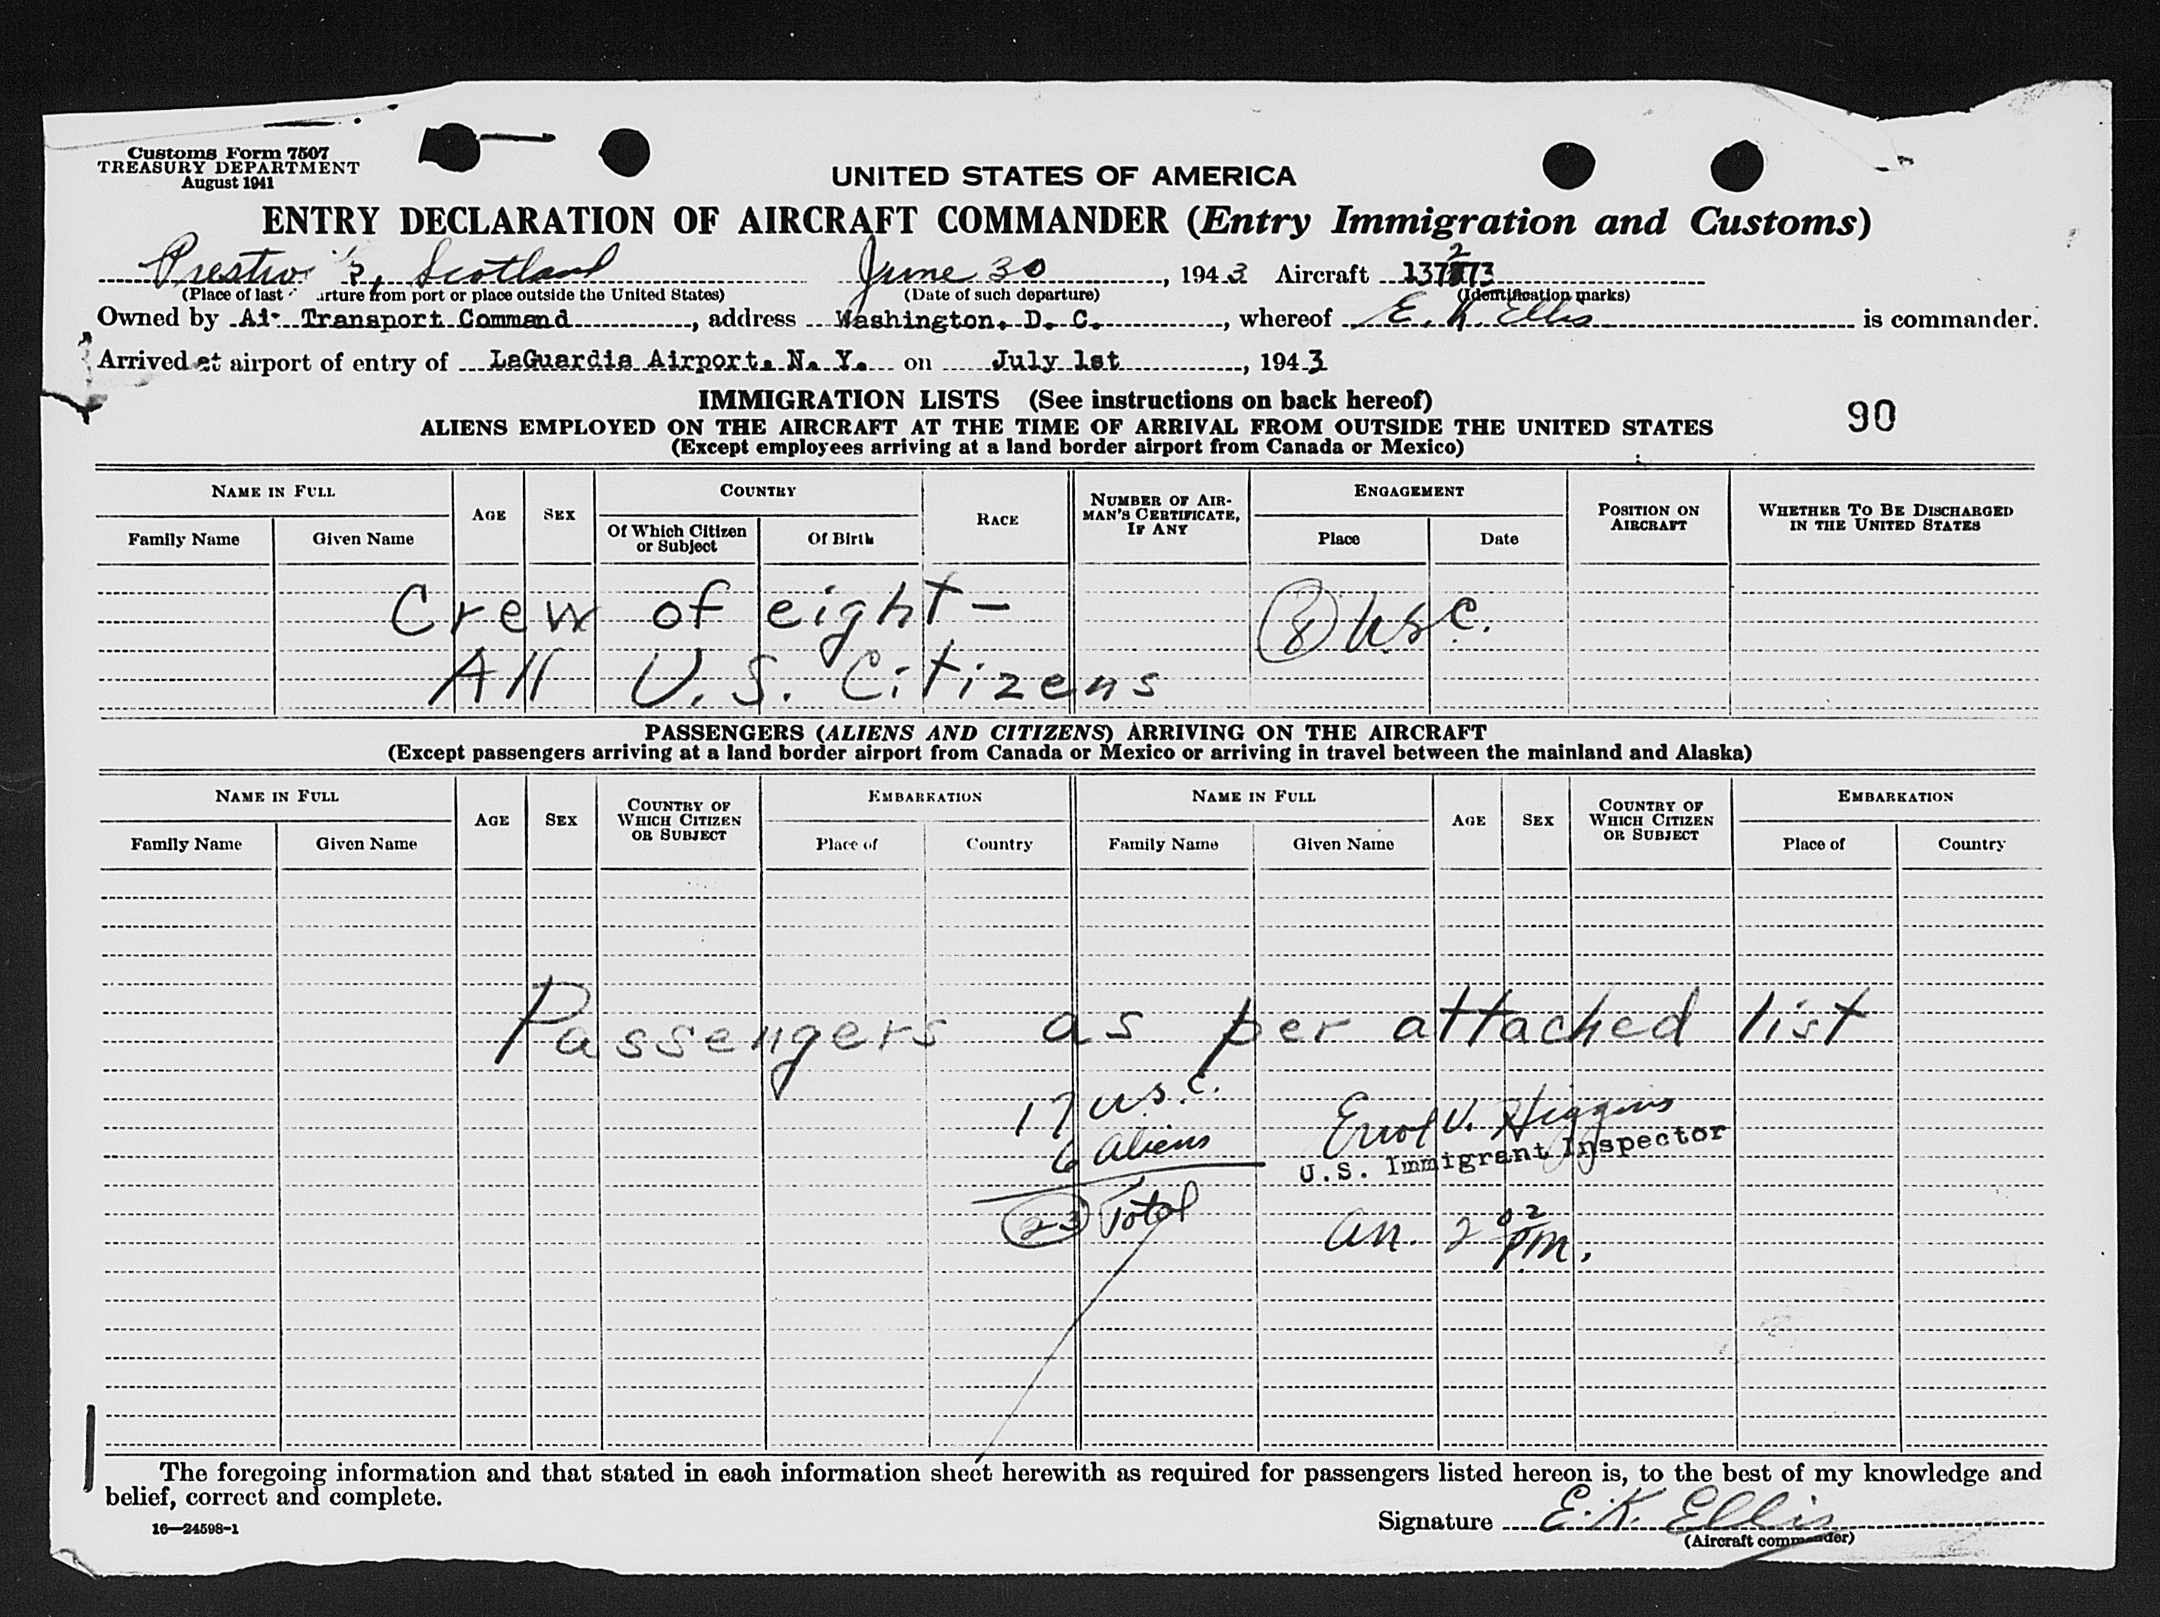 Customs Form 7507
TREASURY DEPARTMENT
August 1941
UNITED STATES OF AMERICA
ENTRY DECLARATION OF AIRCRAFT COMMANDER (Entry Immigration and Customs)
Scotland June 30, 1943 Aircraft
(Place of last arture from port or place outside the United States) (Date of such departure) (Identification marks)
Owned by Air Transport Command, address Washington, D. C., whereof E. K. Ellis is commander.
Arrived at airport of entry of LaGuardia Airport, N. Y. on July 1st, 1943
IMMIGRATION LISTS (See instructions on back hereof)
90
ALIENS EMPLOYED ON THE AIRCRAFT AT THE TIME OF ARRIVAL FROM OUTSIDE THE UNITED STATES
(Except employees arriving at a land border airport from Canada or Mexico)
NAME IN FULL AGE SEX COUNTRY RACE NUMBER OF AIRMAN'S CERTIFICATE, IF ANY ENGAGEMENT POSITION ON AIRCRAFT WHETHER TO BE DISCHARGED IN THE UNITED STATES
Family Name Given Name Of Which Citizen or Subject Of Birth Place Date
Crew of eight- (8) U.S.C.
All U.S. Citizens
PASSENGERS (ALIENS AND CITIZENS) ARRIVING ON THE AIRCRAFT
(Except passengers arriving at a land border airport from Canada or Mexico or arriving in travel between the mainland and Alaska)
NAME IN FULL AGE SEX COUNTRY OF WHICH CITIZEN OR SUBJECT EMBARKATION NAME IN FULL AGE SEX COUNTRY OF WHICH CITIZEN OR SUBJECT EMBARKATION
Family Name Given Name Place of Country Family Name Given Name Place of Country
Passengers as per attached list
17 U.S.C. Errol V. Higgins
6 Aliens U.S. Immigrant Inspector
23 Total 2 02 PM.
The foregoing information and that stated in each information sheet herewith as required for passengers listed hereon is, to the best of my knowledge and
belief, correct and complete.
16—24598-1
Signature E. K. Ellis
(Aircraft commander)